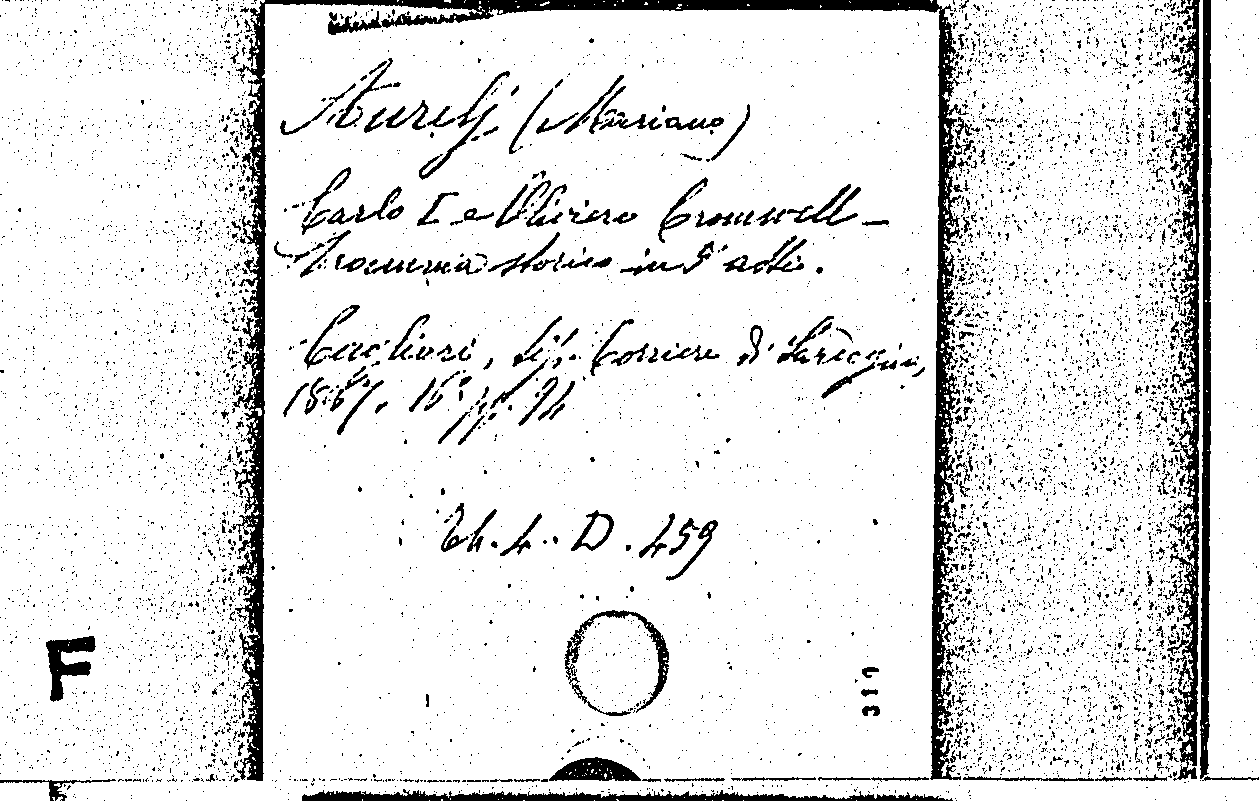 Aurelj (Mariano)
Carlo I e Oliviero Cromwell –
Dramma storico in 5 atti.
Cagliari, tip. Corriere di Sardegna,
1867. 16° pp. 94
Th. 4. D. 459
F
310